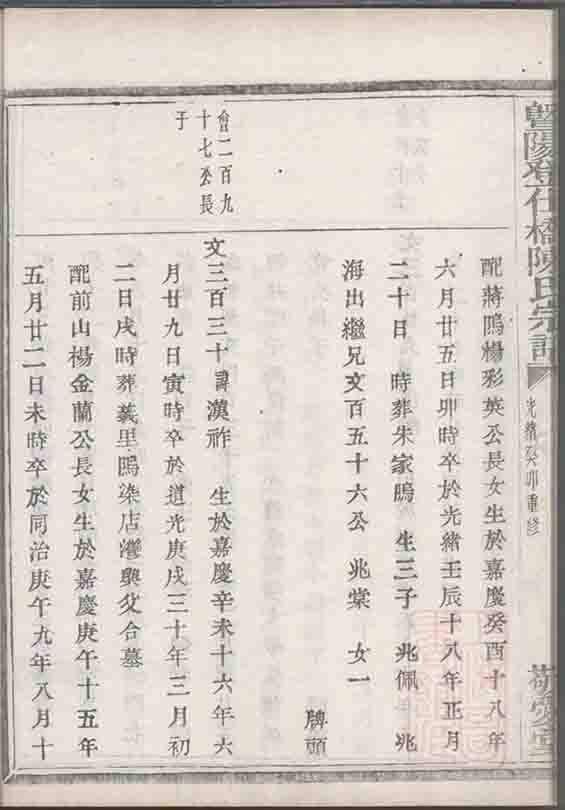 暨陽登仕橋陳氏宗譜
光緒癸卯重修
配蔣鴫楊彩英公長女生於嘉慶癸酉十八年
六月廿五日卯時卒於光緒壬辰十八年正月
二十日 時葬朱家鴫 生三子 兆佩 兆
海出繼兄文百五十六公 兆棠 女一
牌頭
會二百九
十七公長
子
文三百三十諱漢祚 生於嘉慶辛未十六年六
月廿九日寅時卒於道光庚戌三十年三月初
二日戌時葬義里鴫染店灣與父合墓
配前山楊金蘭公長女生於嘉慶庚午十五年
五月廿二日未時卒於同治庚午九年八月十